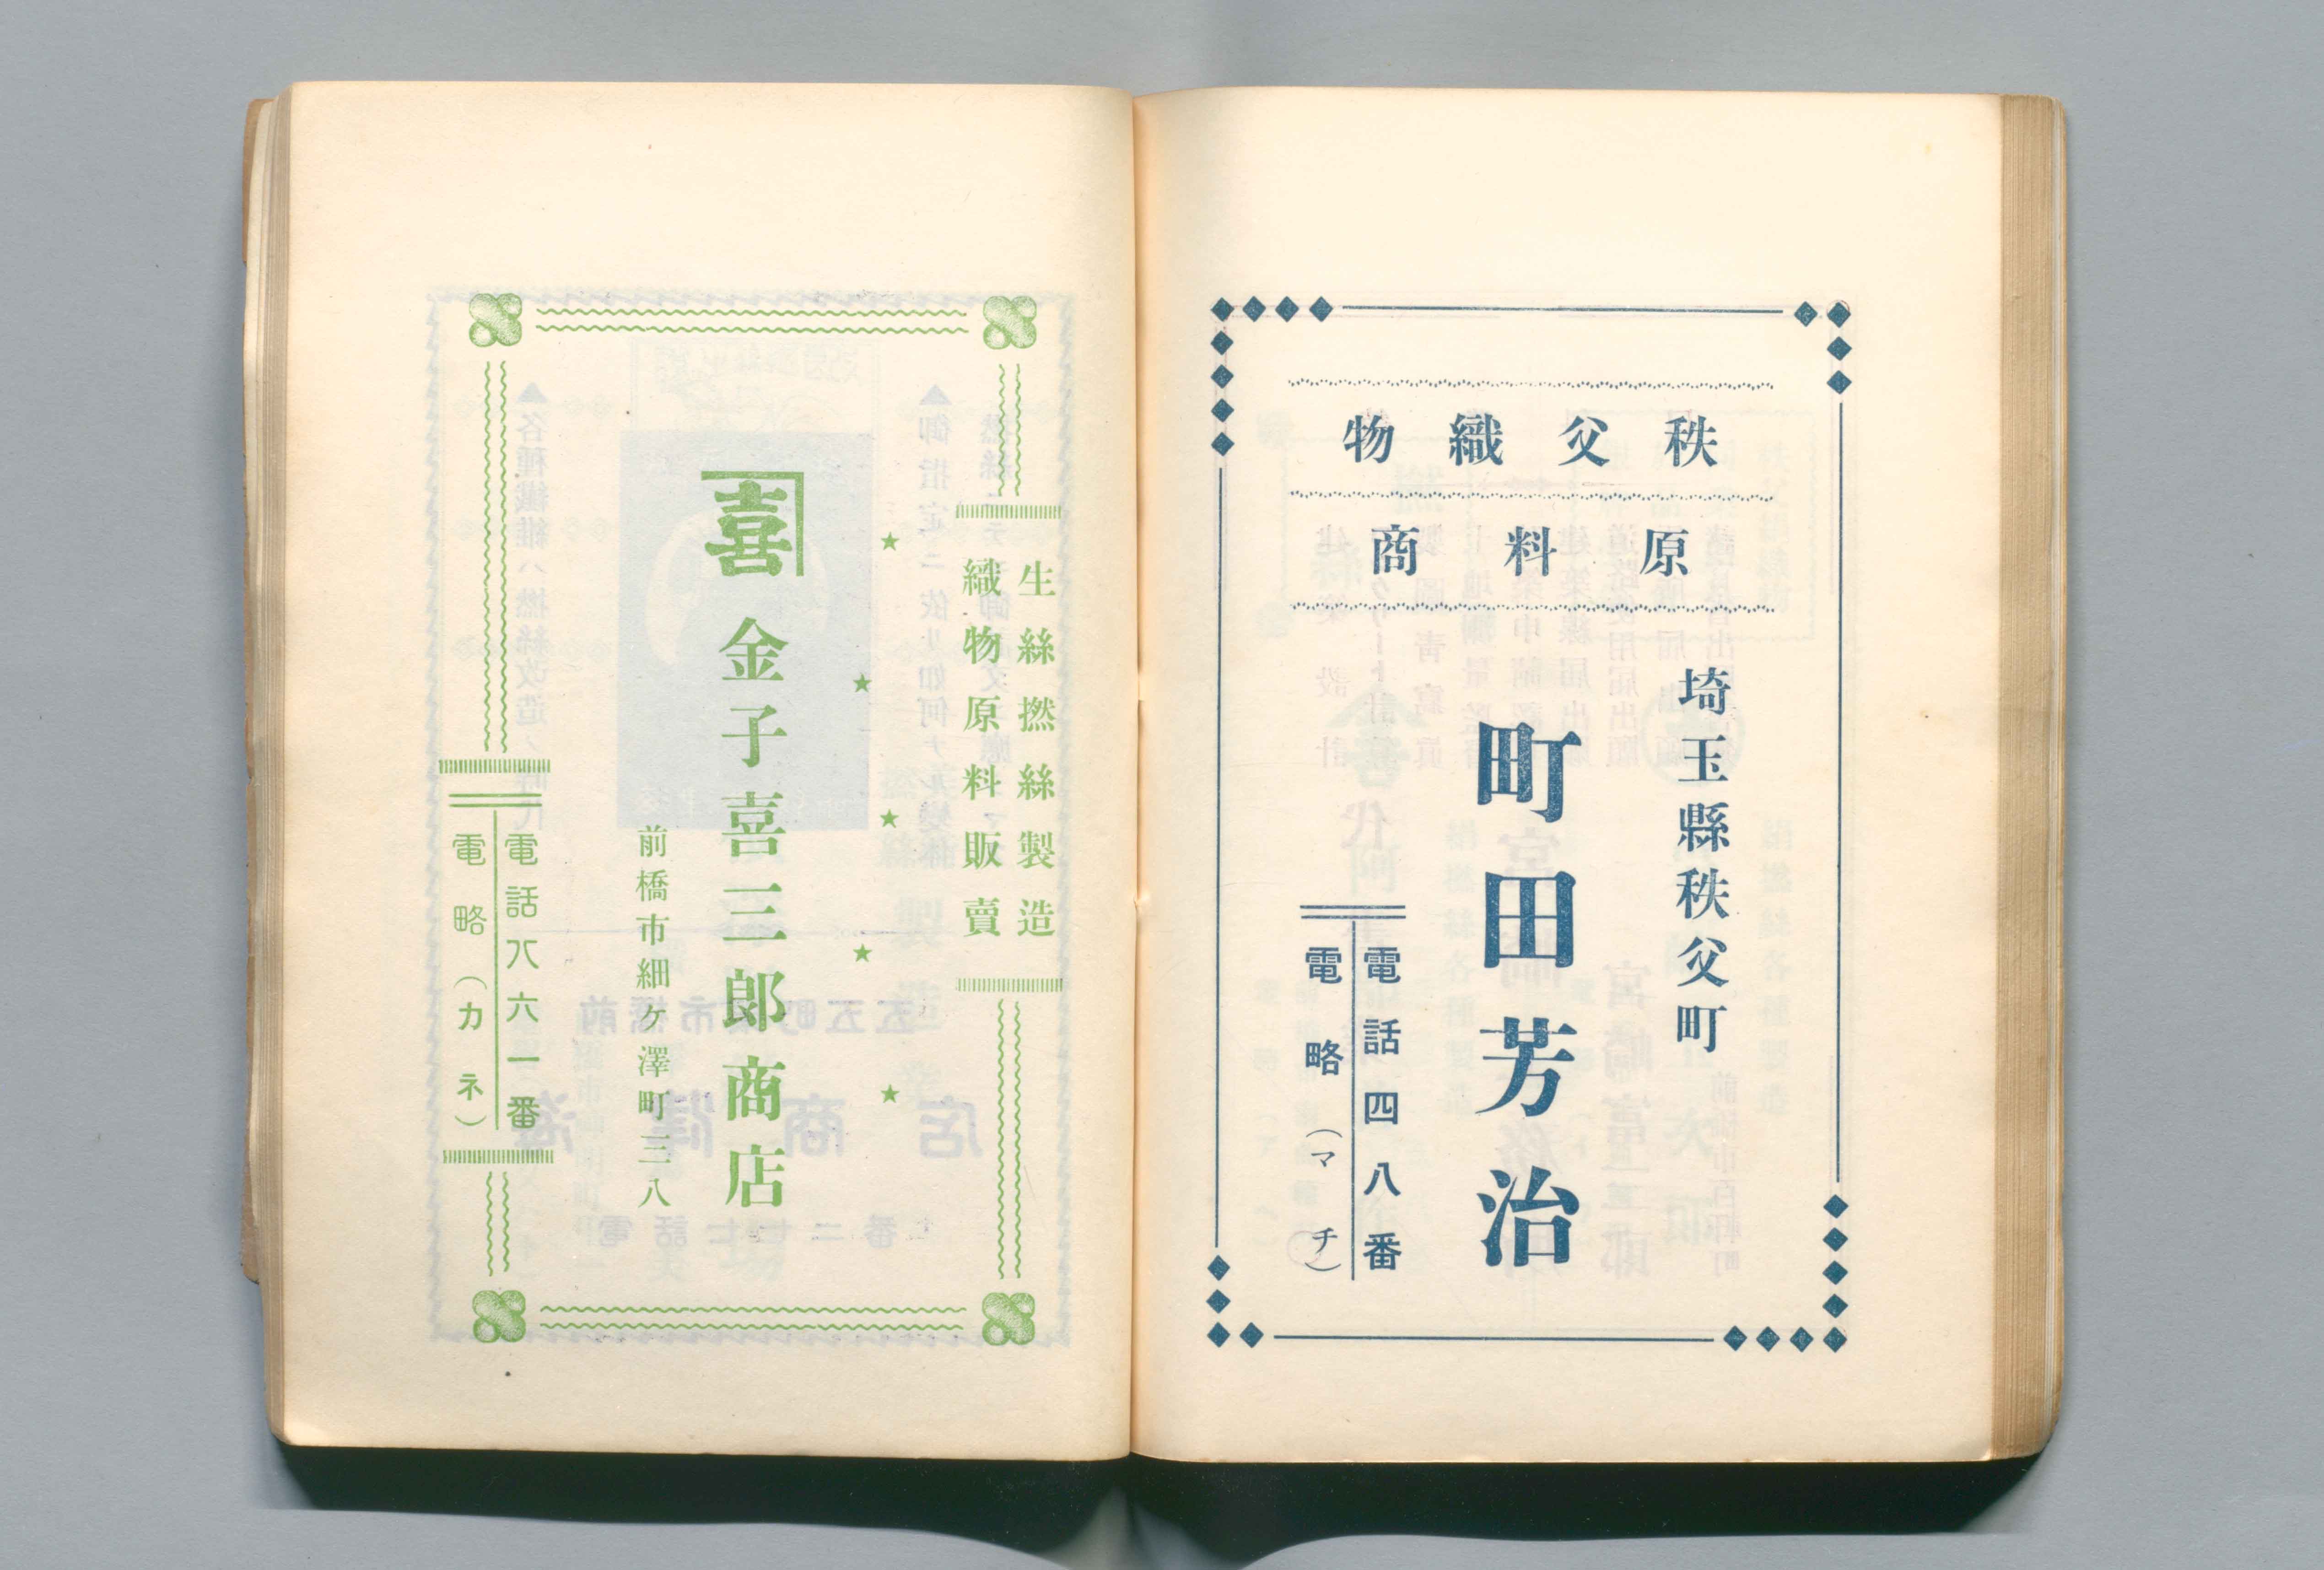 秩父織物
原料商
埼玉縣秩父町
町田芳治
電話四八番
電略（マチ）
生絲撚絲製造
織物原料販賣
喜
金子喜三郎商店
前橋市細ケ澤町三八
電話八六一番
電略（カネ）